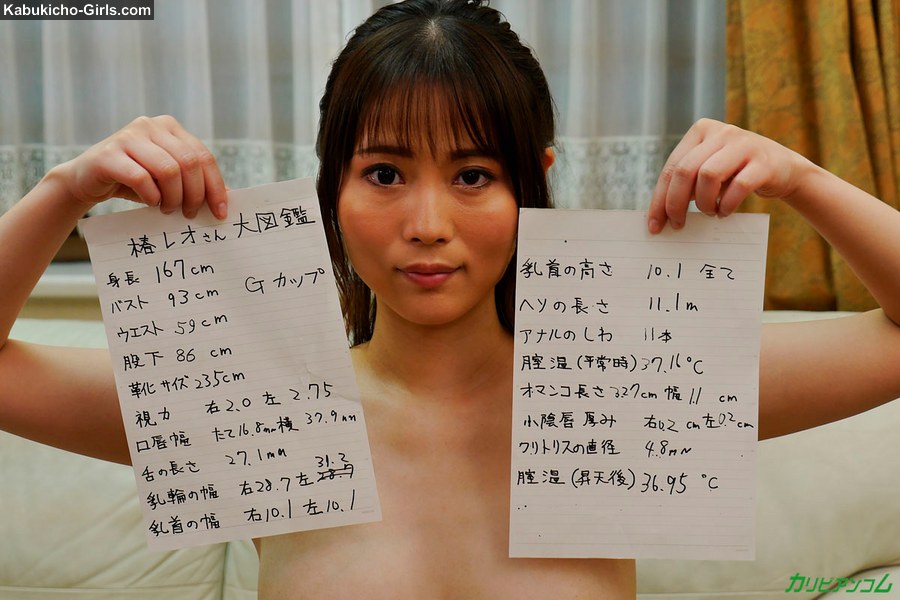 Kabukicho-Girls.com
椿レオさん大図鑑
身長 167cm
バスト 93cm Gカップ
ウエスト 59cm
股下 86cm
靴サイズ 23.5cm
視力 右2.0 左2.75
口唇幅 たて16.8mm横 37.9mm
舌の長さ 27.1mm
31.2
乳輪の幅 右28.7 左28.7
乳首の幅 右10.1 左10.1
乳首の高さ 10.1 全て
ヘソの長さ 11.1m
アナルのしわ 11本
膣温(平常時)37.16℃
オマンコ長さ 327cm 幅 1.1 cm
小陰唇 厚み 右0.2cm 左0.2cm
クリトリスの直径 4.8mm
膣温(昇天後)36.95℃
カリビアンコム